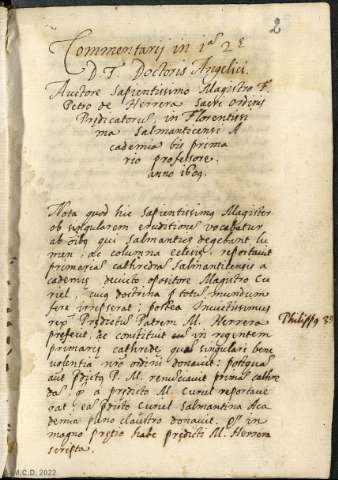 2
Commentarij in 1ª 2ᵉ
D. T. Doctoris Angelici.
Auctore sapientissimo Magistro F.
Petro de Herrera sacri ordinis
Predicatorũ, in Florentissi
ma Salmanticensi A
cademia bis prima
rio professore.
anno 1609.
Nota quod hic sapientissimus Magister
ob singularem eruditionẽ vocabatur
ab oĩbus qui Salmanticę degebant lu
men, ac columna eclesię, reportavit
primariã cathedrã Salmanticensis a
cademię, devicto opositore Magistro Cu
riel, cuius doctrina per totũ mundum
fere irrepserat; postea Invictissimus
rex Predictũ Patrem M. Herrera
prefecit, ac constituit in regentem
primarię cathedrę, quã singulari bene
volentia nr̃o ordini donavit: postquã
aũt pdictus P. M. renuciavit primã cathe
drã, q̃ a predicto M. Curiel reportave
rat, eã pdicto Curiel Salmantina Aca
demia pleno claustro donavit. et in
magno pretio habe predicti M. Herrera
scripta.
Philippus 3us
M.C.D. 2022